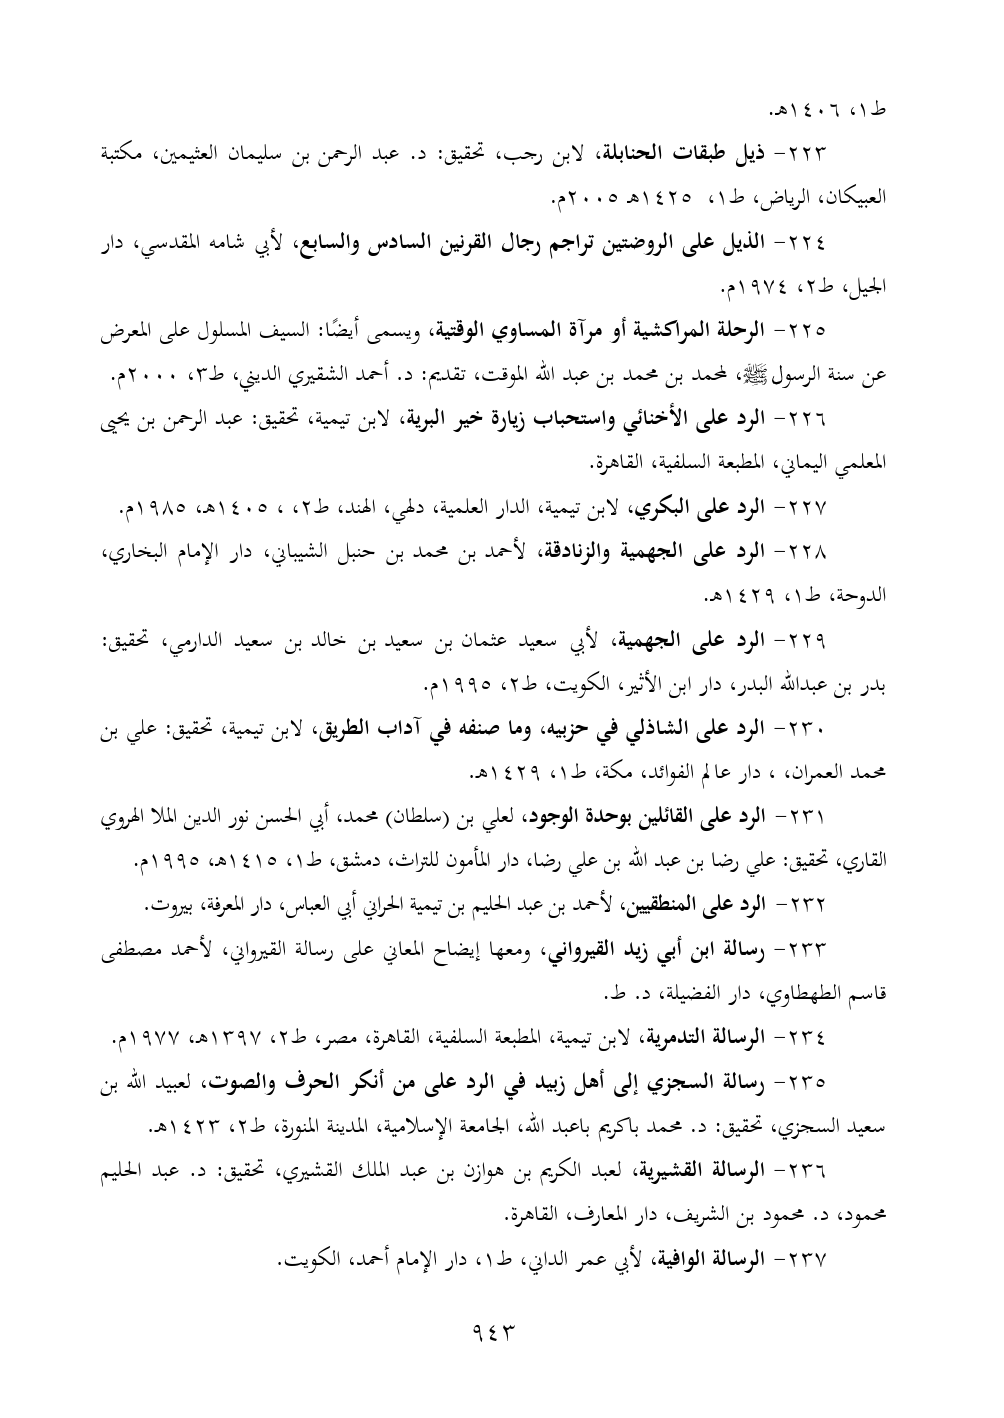 ط١، ١٤٠٦هـ.
٢٢٣- ذيل طبقات الحنابلة، لابن رجب، تحقيق: د. عبد الرحمن بن سليمان العثيمين، مكتبة
العبيكان، الرياض، ط١، ١٤٢٥هـ ٢٠٠٥م.
٢٢٤- الذيل على الروضتين تراجم رجال القرنين السادس والسابع، لأبي شامه المقدسي، دار
الجيل، ط٢، ١٩٧٤م.
٢٢٥- الرحلة المراكشية أو مرآة المساوي الوقتية، ويسمى أيضًا: السيف المسلول على المعرض
عن سنة الرسول ﷺ، لمحمد بن محمد بن عبد الله الموقت، تقديم: د. أحمد الشقيري الديني، ط٣، ٢٠٠٠م.
٢٢٦- الرد على الأخنائي واستحباب زيارة خير البرية، لابن تيمية، تحقيق: عبد الرحمن بن يحيى
المعلمي اليماني، المطبعة السلفية، القاهرة.
٢٢٧- الرد على البكري، لابن تيمية، الدار العلمية، دلهي، الهند، ط٢، ، ١٤٠٥هـ، ١٩٨٥م.
٢٢٨- الرد على الجهمية والزنادقة، لأحمد بن محمد بن حنبل الشيباني، دار الإمام البخاري،
الدوحة، ط١، ١٤٢٩هـ.
٢٢٩- الرد على الجهمية، لأبي سعيد عثمان بن سعيد بن خالد بن سعيد الدارمي، تحقيق:
بدر بن عبدالله البدر، دار ابن الأثير، الكويت، ط٢، ١٩٩٥م.
٢٣٠- الرد على الشاذلي في حزبيه، وما صنفه في آداب الطريق، لابن تيمية، تحقيق: علي بن
محمد العمران، ، دار عالم الفوائد، مكة، ط١، ١٤٢٩هـ.
٢٣١- الرد على القائلين بوحدة الوجود، لعلي بن (سلطان) محمد، أبي الحسن نور الدين الملا الهروي
القاري، تحقيق: علي رضا بن عبد الله بن علي رضا، دار المأمون للتراث، دمشق، ط١، ١٤١٥هـ، ١٩٩٥م.
٢٣٢- الرد على المنطقيين، لأحمد بن عبد الحليم بن تيمية الحراني أبي العباس، دار المعرفة، بيروت.
٢٣٣- رسالة ابن أبي زيد القيرواني، ومعها إيضاح المعاني على رسالة القيرواني، لأحمد مصطفى
قاسم الطهطاوي، دار الفضيلة، د. ط.
٢٣٤- الرسالة التدمرية، لابن تيمية، المطبعة السلفية، القاهرة، مصر، ط٢، ١٣٩٧هـ، ١٩٧٧م.
٢٣٥- رسالة السجزي إلى أهل زبيد في الرد على من أنكر الحرف والصوت، لعبيد الله بن
سعيد السجزي، تحقيق: د. محمد باكريم باعبد الله، الجامعة الإسلامية، المدينة المنورة، ط٢، ١٤٢٣هـ.
٢٣٦- الرسالة القشيرية، لعبد الكريم بن هوازن بن عبد الملك القشيري، تحقيق: د. عبد الحليم
محمود، د. محمود بن الشريف، دار المعارف، القاهرة.
٢٣٧- الرسالة الوافية، لأبي عمر الداني، ط١، دار الإمام أحمد، الكويت.
٩٤٣